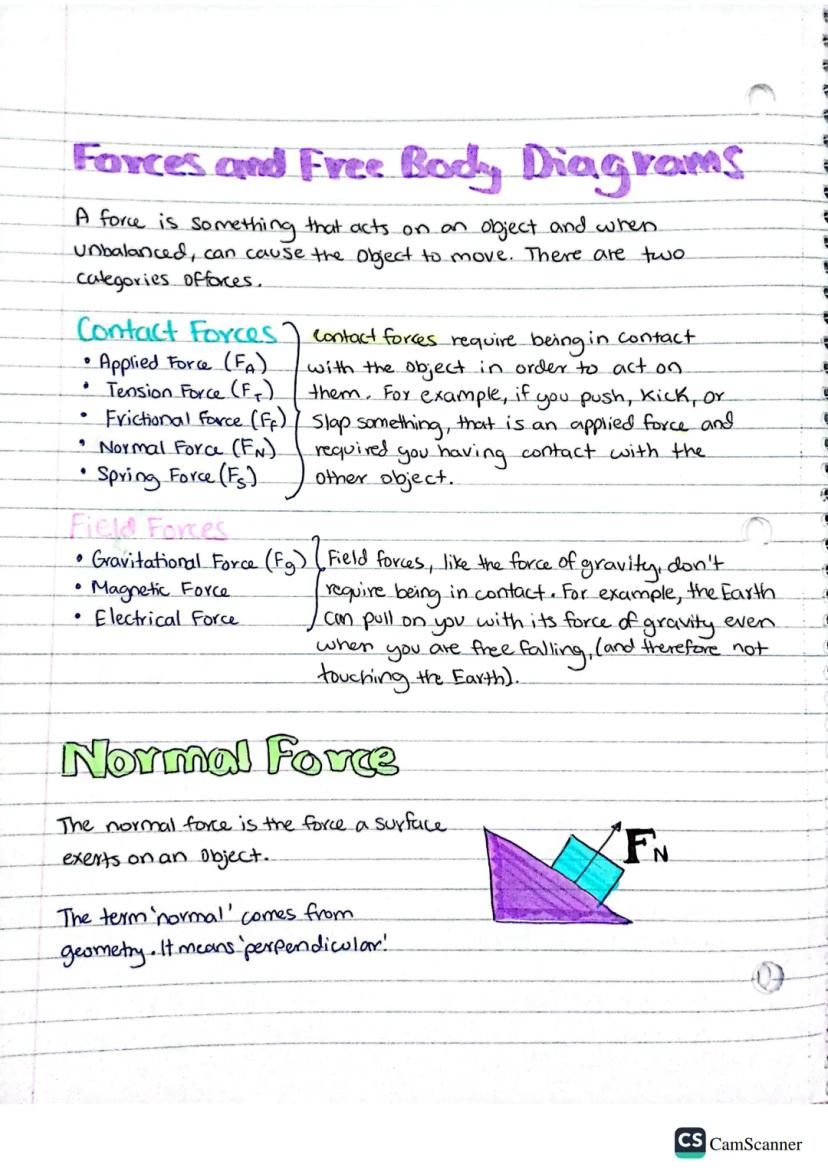 Forces and Free Body Diagrams
A force is something that acts on an object and when
unbalanced, can cause the object to move. There are two
categories of forces.
Contact Forces
• Applied Force (FA)
• Tension Force (FT)
• Frictional Force (Ff)
• Normal Force (FN)
• Spring Force (Fs)
contact forces require being in contact
with the object in order to act on
them. For example, if you push, kick, or
slap something, that is an applied force and
required you having contact with the
other object.
Field Forces
• Gravitational Force (Fg)
• Magnetic Force
• Electrical Force
Field forces, like the force of gravity, don't
require being in contact. For example, the Earth
can pull on you with its force of gravity even
when you are free falling, (and therefore not
touching the Earth).
Normal Force
The normal force is the force a surface
exerts on an object.
FN
The term 'normal' comes from
geometry. It means 'perpendicular'
CS CamScanner